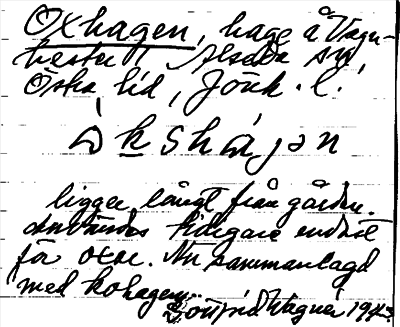 Oxhagen, hage å Vagn-
hester, Alseda sn,
Östra hd, Jönk. l.
òkshàjən
ligger långt från gården.
Användes tidigare endast
för oxar. Nu sammanlagd
med kohagen.
Wagner 1943